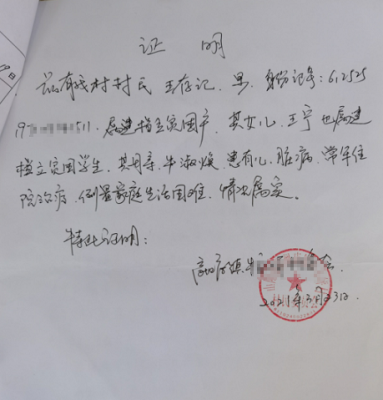 证 明
兹有我村村民 王存记、男、身份证号:612525
19 511,属建档立贫困户,其女儿、王宁也属建
档立贫困学生,其母亲、牛淑焕 患有心脏病,常年住
院治病,倒置家庭生活困难,情况属实。
特此证明:
2021年3月3日